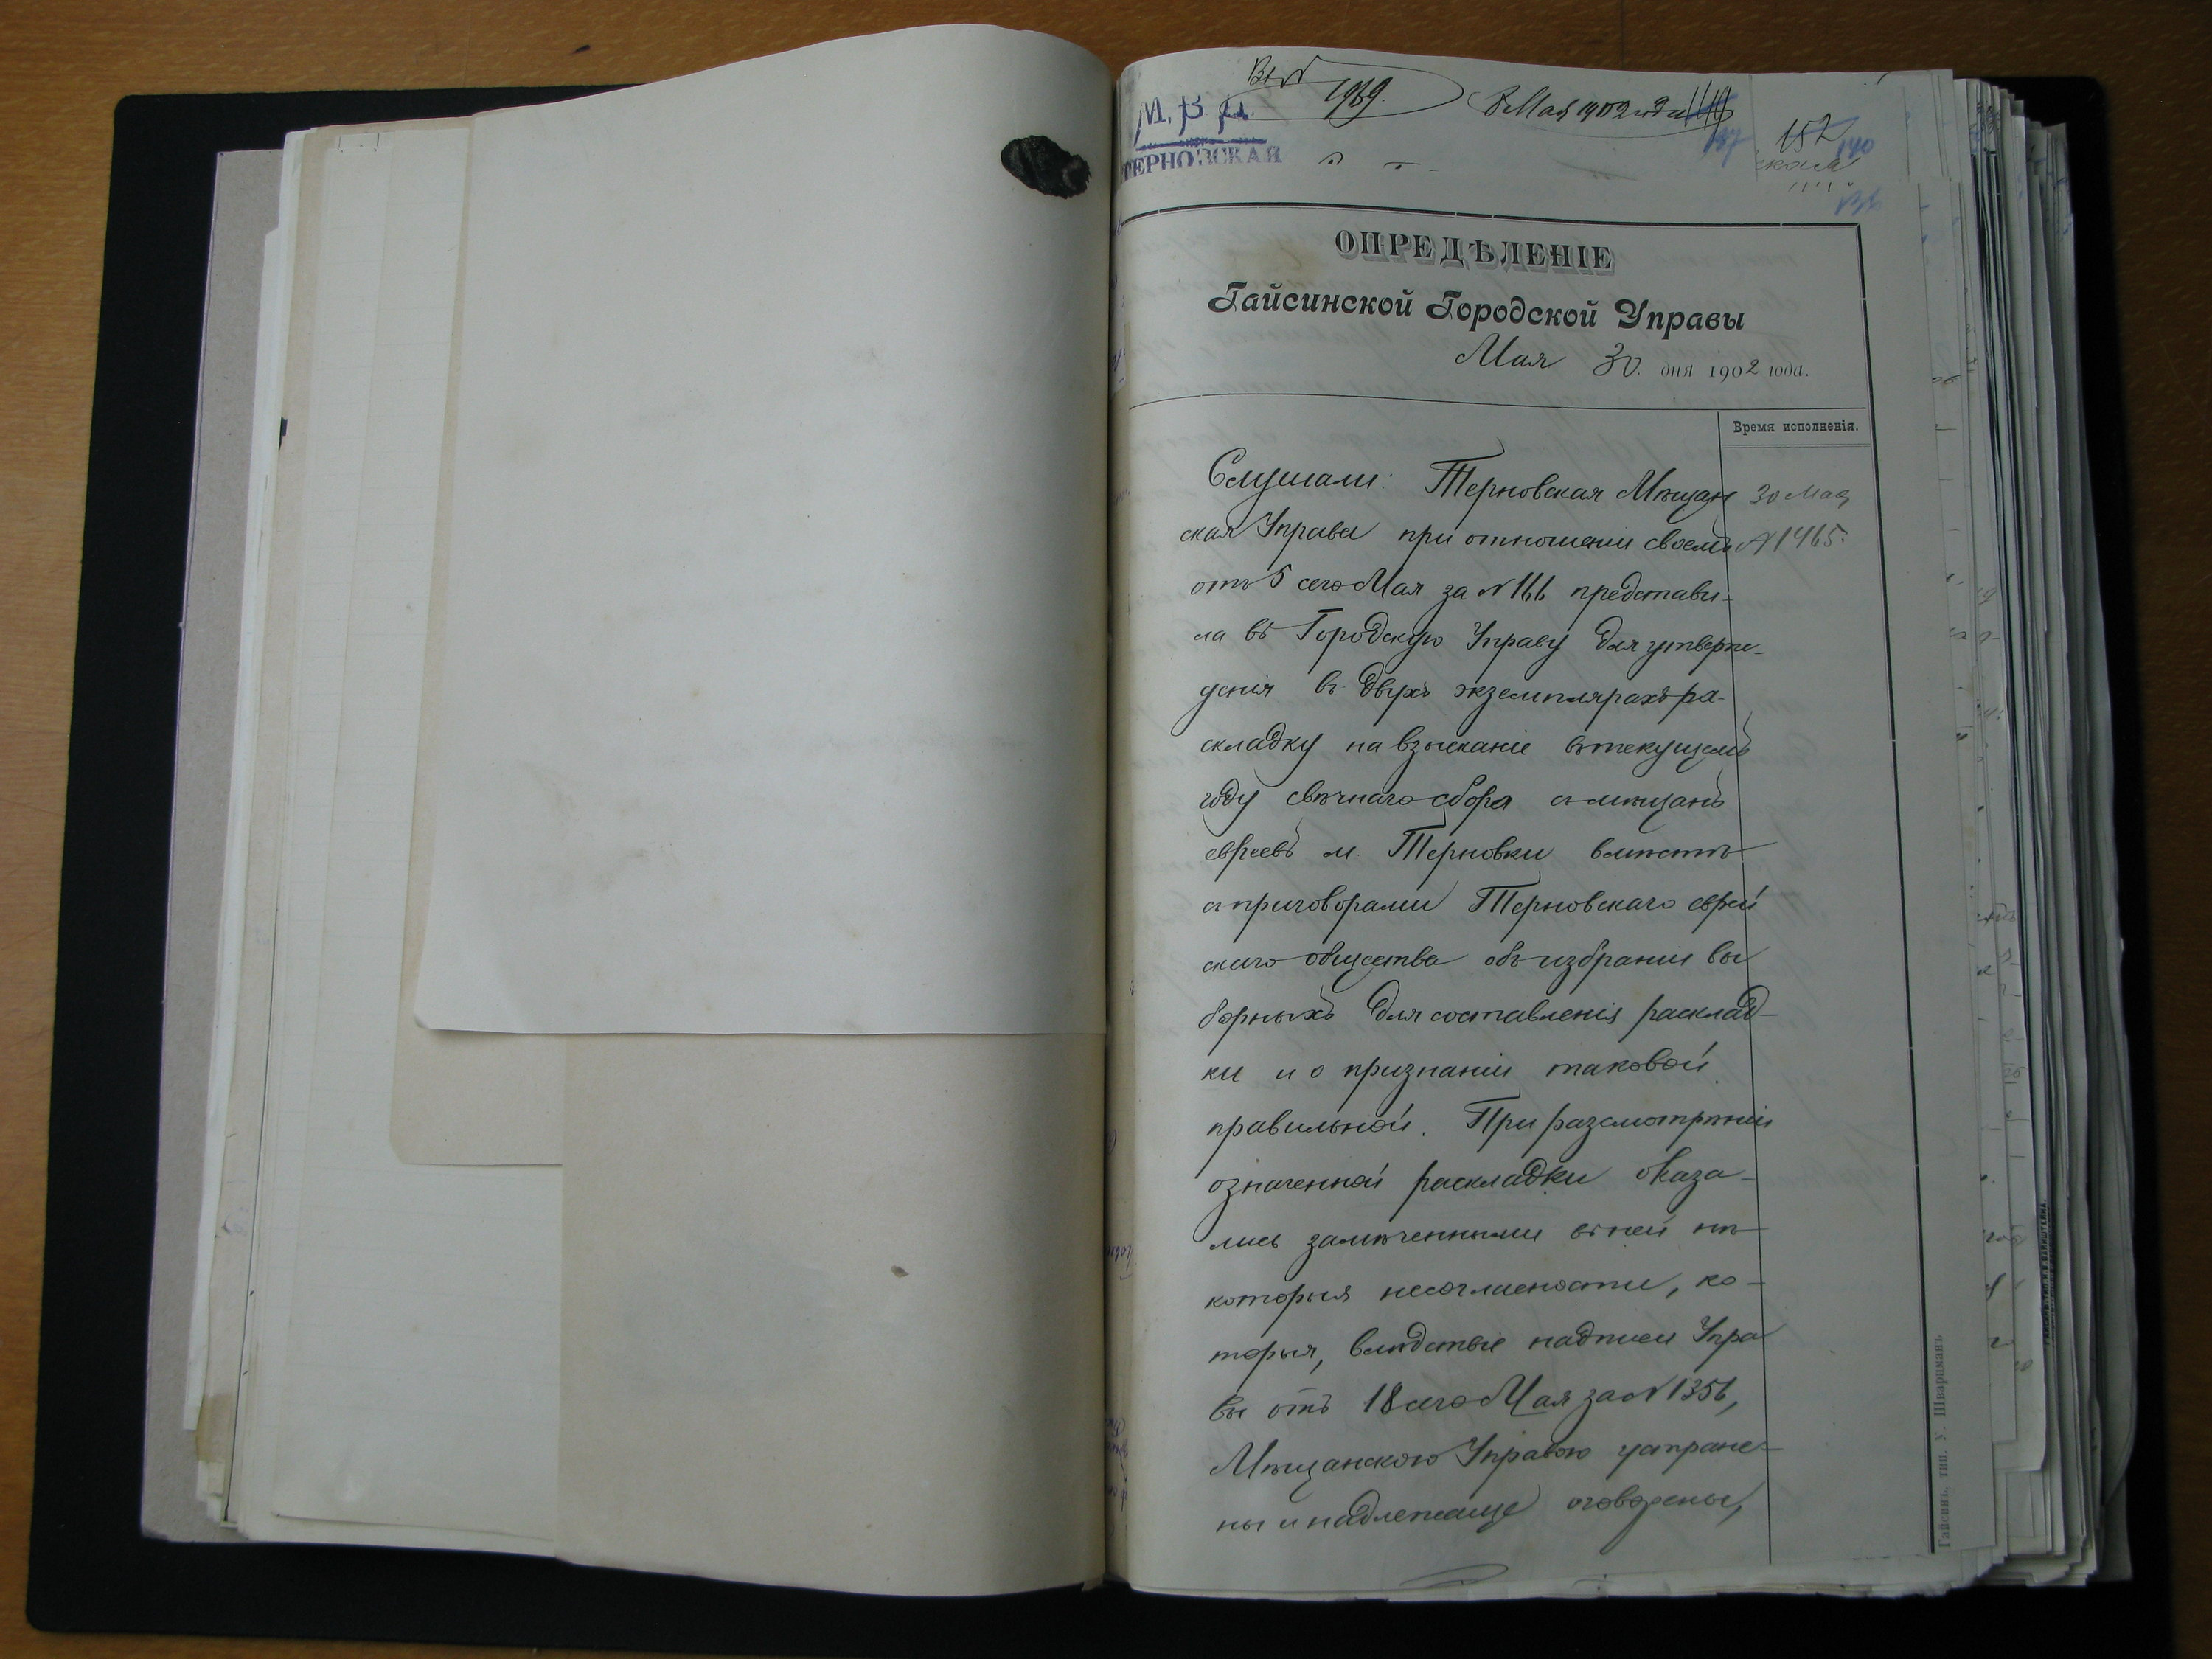 Вх №
1969.
8 Мая 1902 года
М. В. Д.
ТЕРНОВСКАЯ
157
140
ОПРЕДѢЛЕНІЕ
Гайсинской Городской Управы
Мая 30. дня 1902 года.
Время исполненія.
30 Мая
№ 1465.
Слушали: Терновская Мѣщан
ская Управа при отношеніи своемъ
отъ 5 сего Мая за № 166 представи-
ла въ Городскую Управу для утверж-
денія въ двухъ экземплярахъ ра-
складку на взысканіе въ текущемъ
году свѣчнаго сбора съ мѣщанъ
евреевъ м. Терновки вмѣстѣ
съ приговорами Терновскаго еврей
скаго общества объ избраніи вы
борныхъ для составленія расклад-
ки и о признаніи таковой
правильной. При разсмотрѣніи
означенной раскладки оказа-
лись замѣченными въ ней нѣ-
которыя несогласности, ко-
торыя, вслѣдствіе надписи Упра
вы отъ 18 сего Мая за № 1356,
Мѣщанскою Управою устране-
ны и надлежаще оговорены,
Гайсинъ, тип. У. Шварцманъ